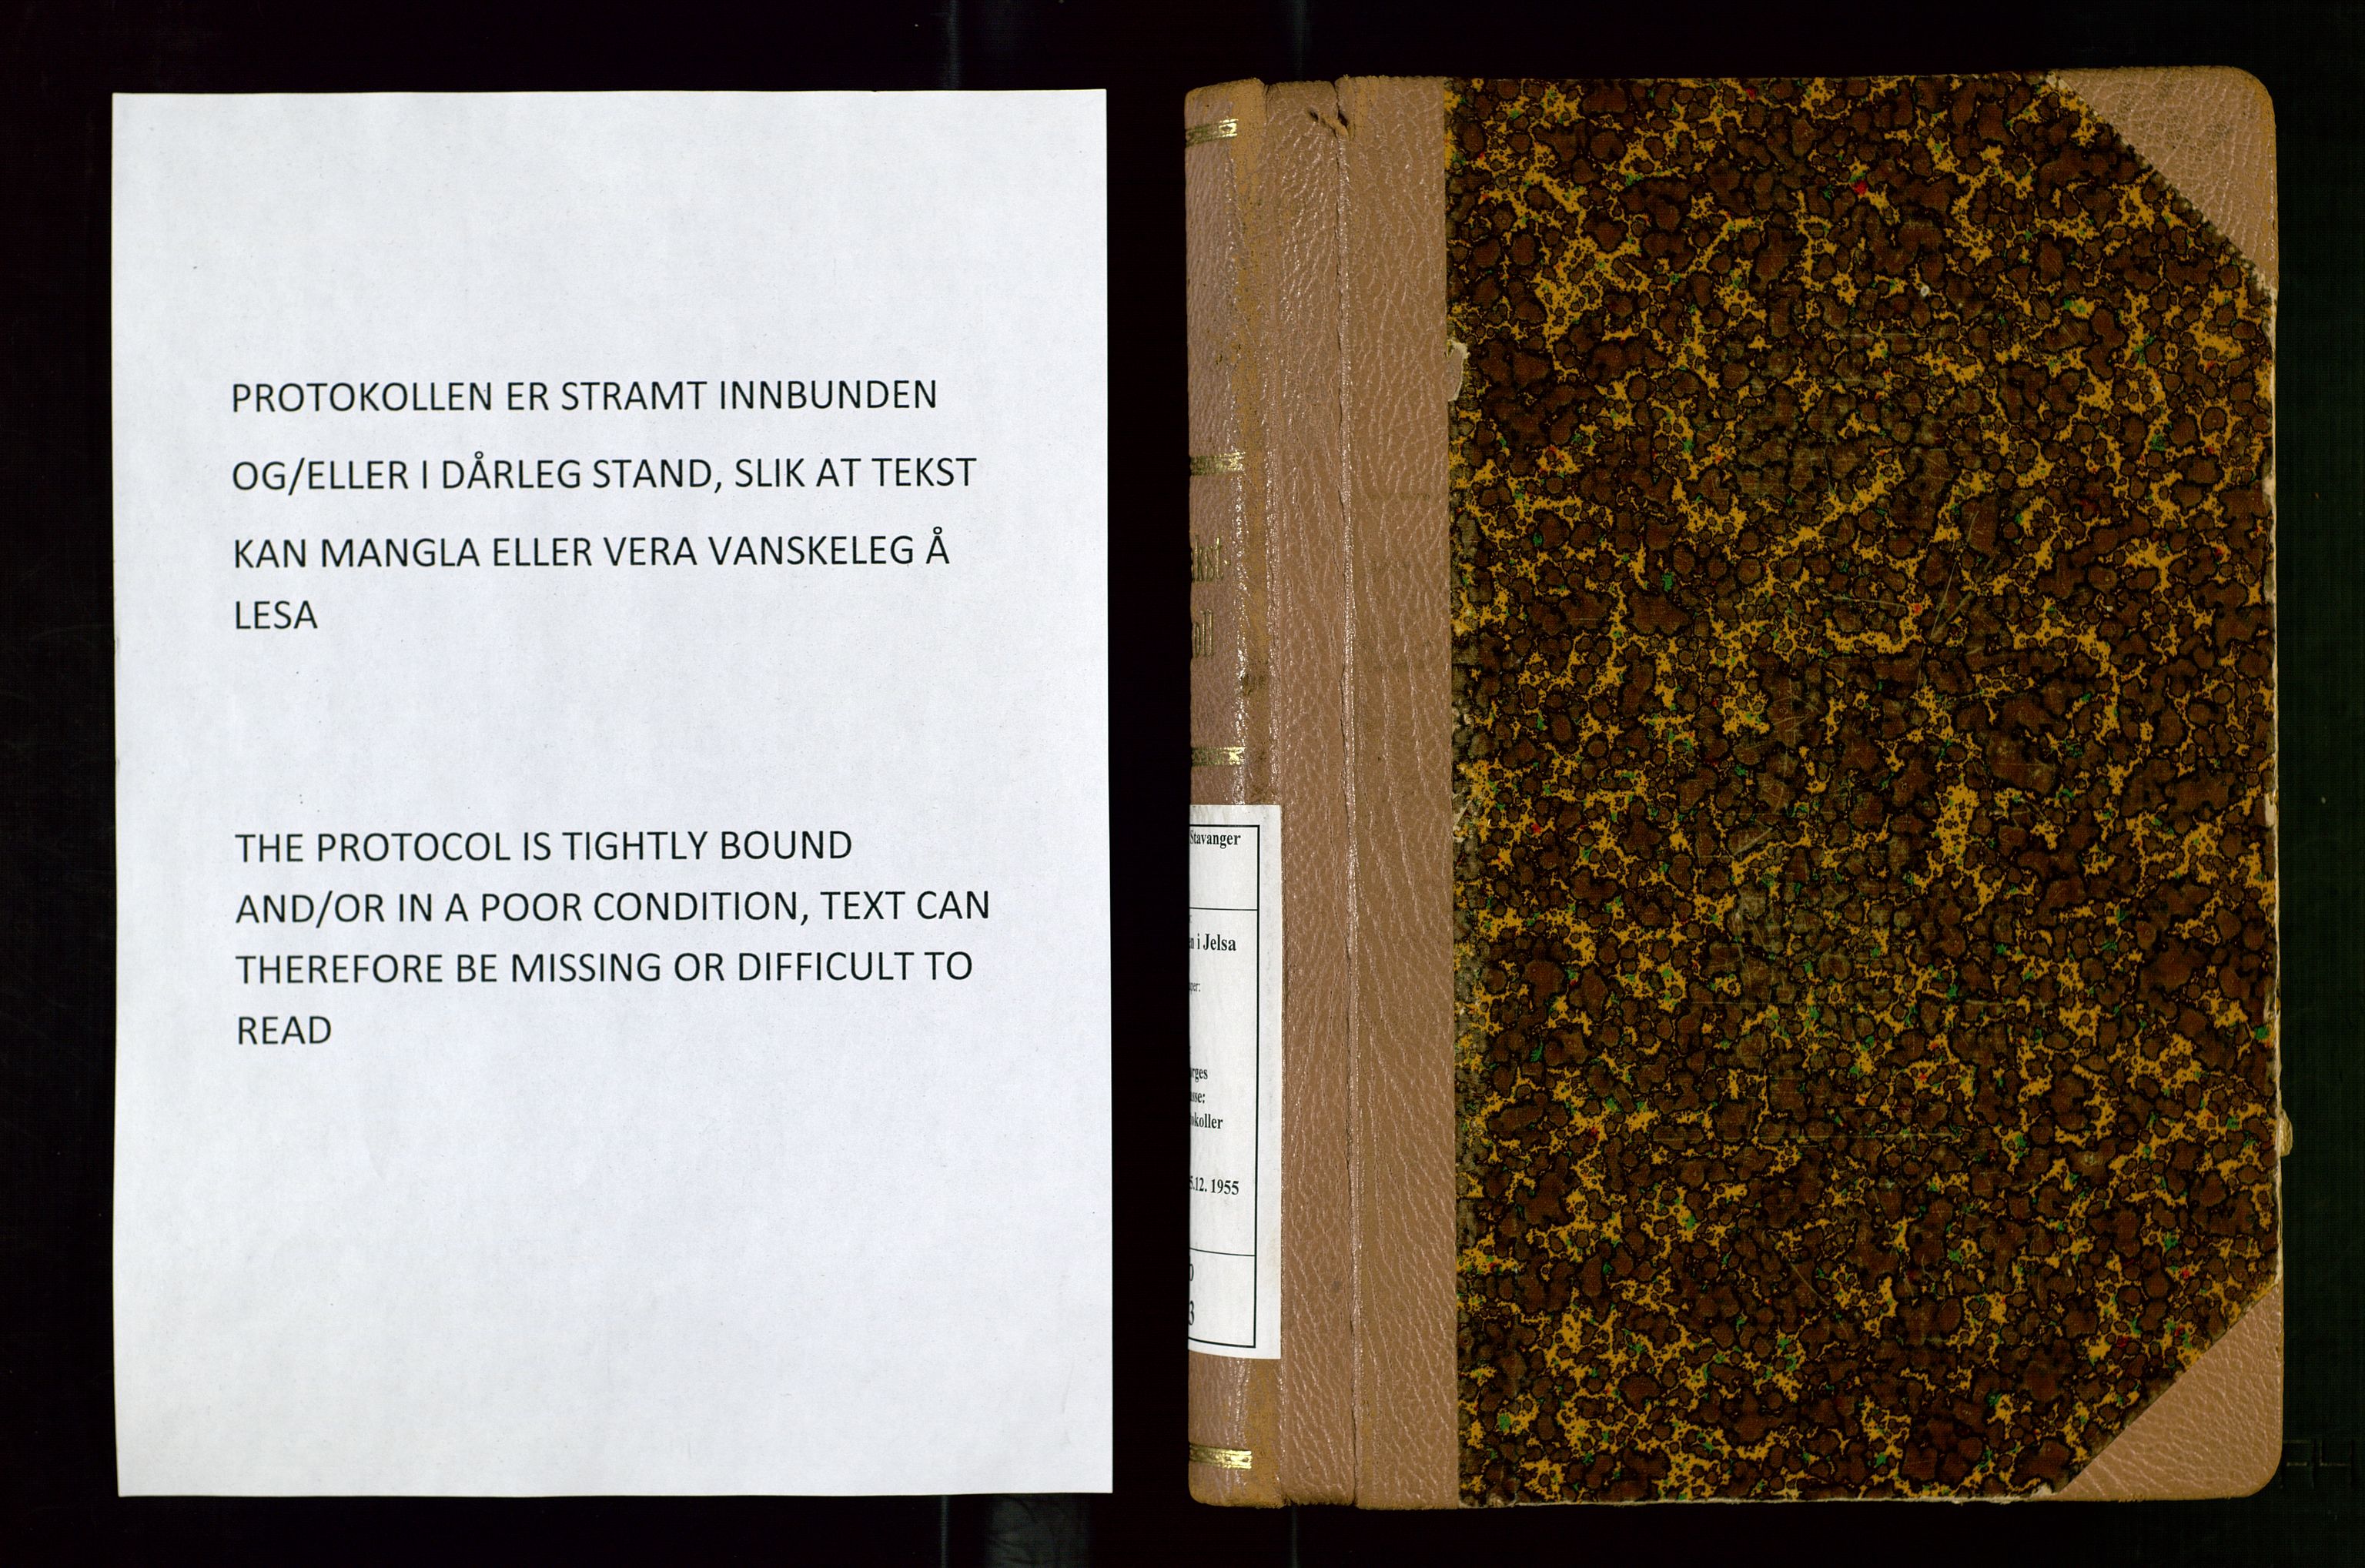 PROTOKOLLEN ER STRAMT INNBUNDEN
OG/ELLER I DÅRLEG STAND, SLIK AT TEKST
KAN MANGLA ELLER VERA VANSKELEG Å
LESA
THE PROTOCOL IS TIGHTLY BOUND
AND/OR IN A POOR CONDITION, TEXT CAN
THEREFORE BE MISSING OR DIFFICULT TO
READ
Stavanger
i Jelsa
5.12. 1955
3